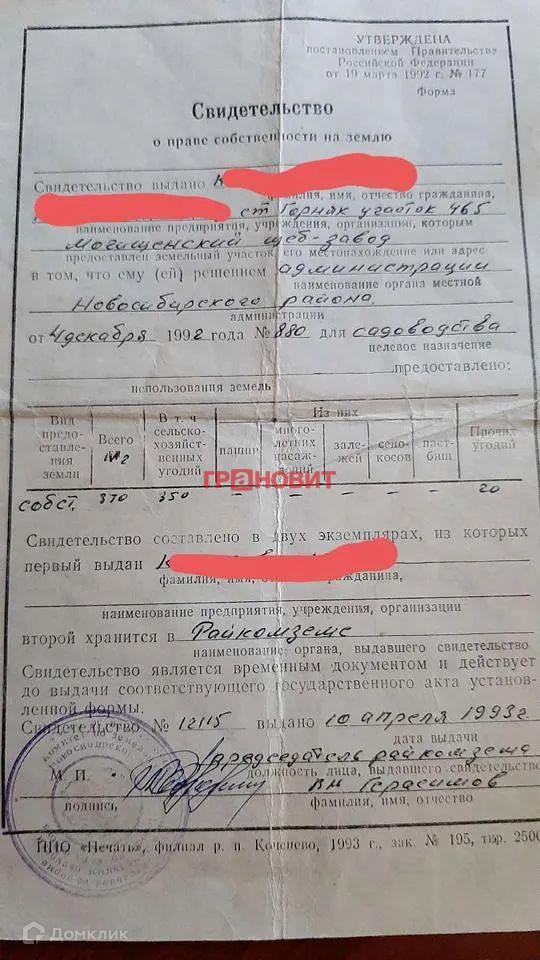 УТВЕРЖДЕНА
постановлением Правительства
Российской Федерации
от 19 марта 1992 г. № 177
Форма
Свидетельство
о праве собственности на землю
Свидетельство выдано
имя, отчество гражданина,
ст Горняк участок 465
наименование предприятия, учреждения, организации, которым
Мочищенский щеб-завод
предоставлен земельный участок, его местонахождение или адрес
в том, что ему (ей) решением администрации
наименование органа местной
Новосибирского района
администрации
от 4 декабря 1992 года № 880 для садоводства
целевое назначение
предоставлено:
использования земель
Вид предоставления земли
Всего м2
В т. ч сельскохозяйственных угодий
Из них
пашни
многолетних насаждений
залежей
сенокосов
пастбищ
Прочих угодий
ГРАНОВИТ
собст. 370 350 – – – – – 20
Свидетельство составлено в двух экземплярах, из которых
первый выдан
фамилия, имя, гражданина,
наименование предприятия, учреждения, организации
второй хранится в Райкомземе
наименование органа, выдавшего свидетельство
Свидетельство является временным документом и действует
до выдачи соответствующего государственного акта установ-
ленной формы.
Свидетельство № 12115 выдано 10 апреля 1993г.
дата выдачи
председатель райкомзема
М. П.
должность лица, выдавшего свидетельство
ВН Герасимов
подпись
фамилия, имя, отчество
ППО «Печать», филиал р. п. Коченево, 1993 г., зак. № 195, тир. 2500
Домклик